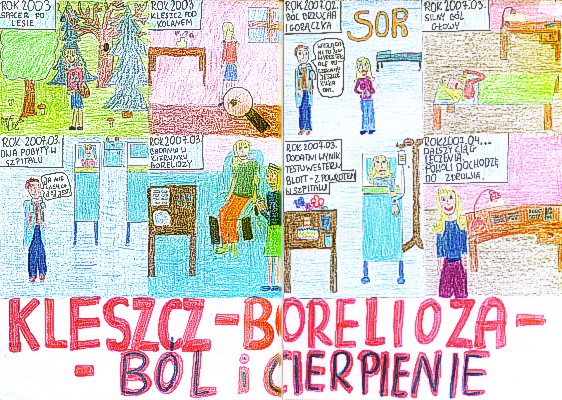 ROK 2003
SPACER PO
LESIE
ROK 2003
KLESZCZ POD
KOLANEM
ROK 2007.02.
BÓL BRZUCHA
I GORĄCZKA
SOR
ALE PO-
CZEKAMY
JESZCZE
ROK 2007.03.
SILNY BÓL
GŁOWY
ROK 2007.03.
DWA POBYTY W
SZPITALU
JA NIE
ROK 2007.03.
BADANIA W
KIERUNKU
BORELIOZY
ROK 2007.03.
DODATNI WYNIK
TESTU WESTERN
BLOTT - Z POWROTEM
W SZPITALU
ROK 2007.04...
DALSZY CIĄG
LECZENIA.
POWOLI DOCHODZĘ
DO ZDROWIA.
KLESZCZ - BORELIOZA -
- BÓL i CIERPIENIE